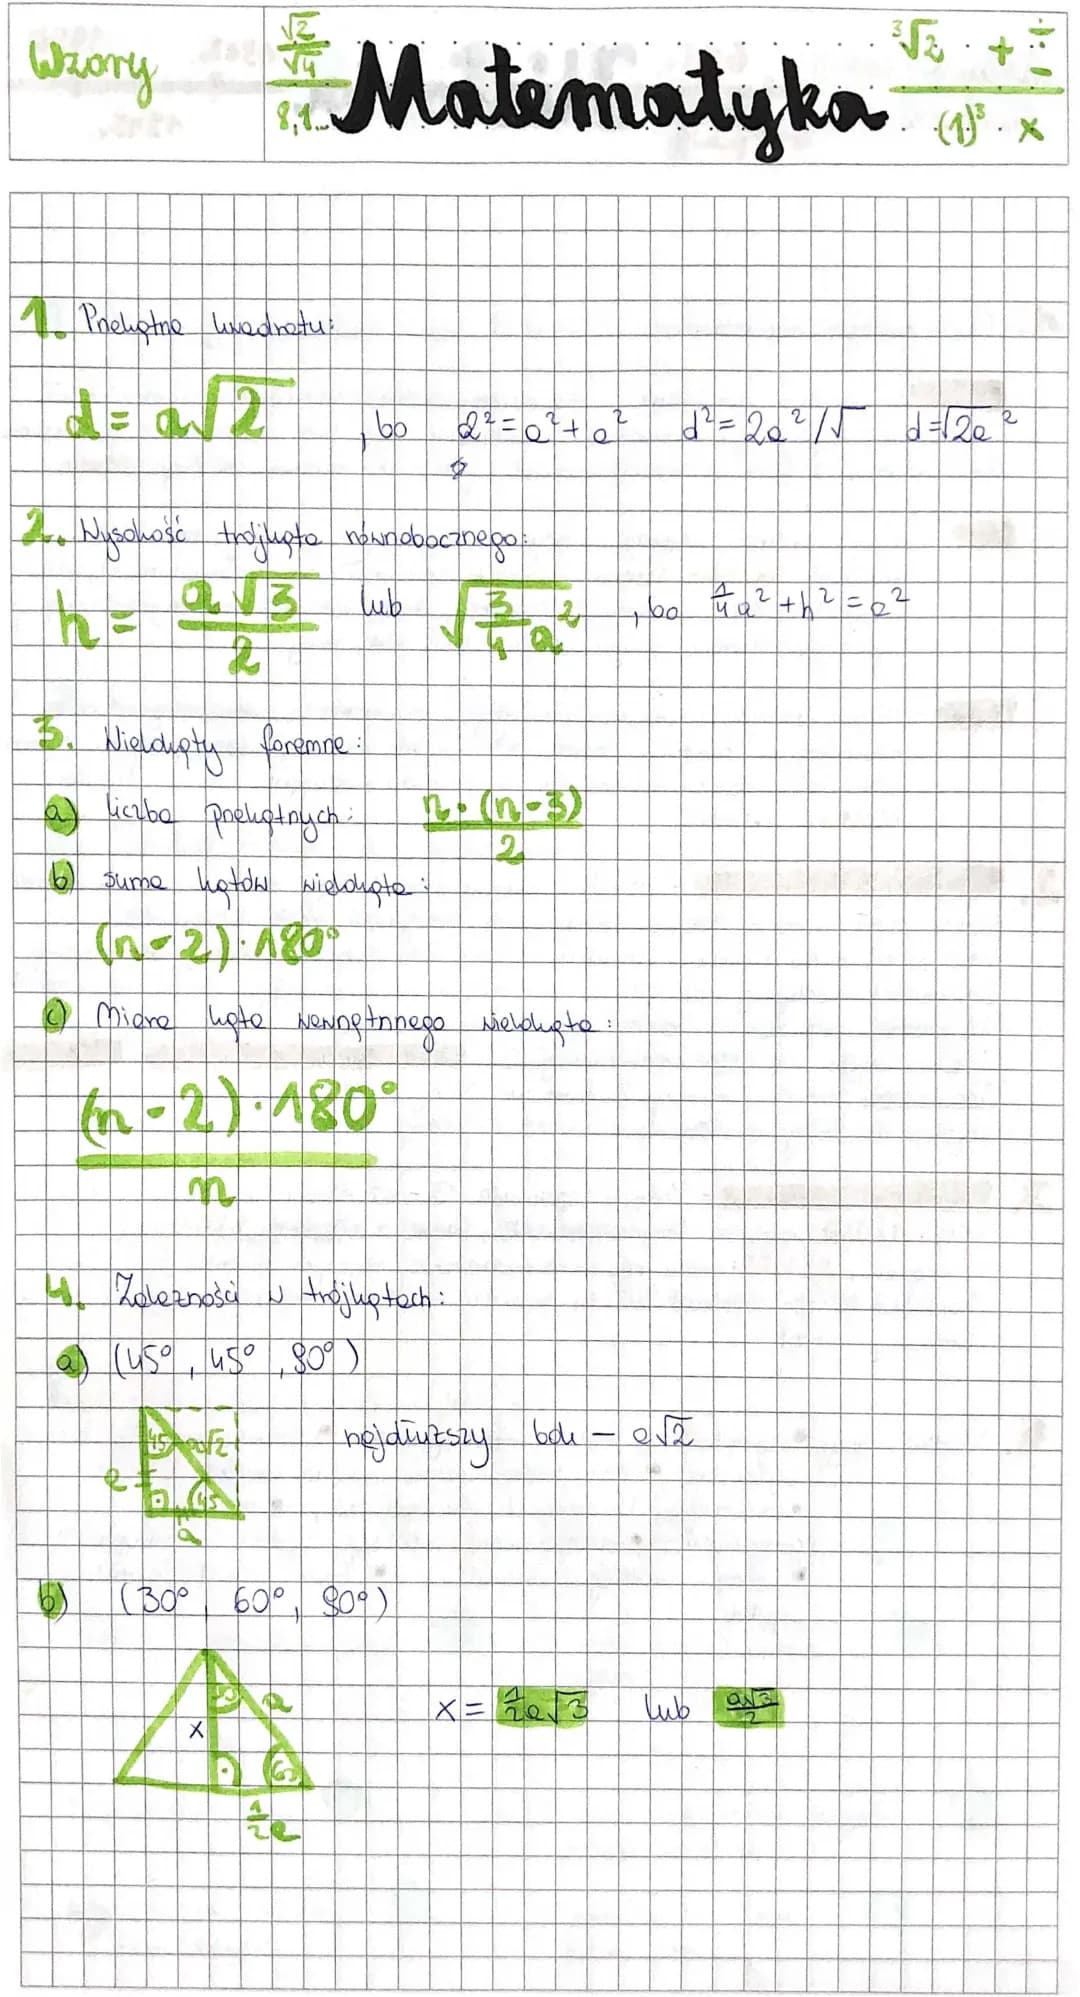 Wzory
√2/√4
8,1...
Matematyka
³√2 · + ÷ -
(1)³ · x
1. Przekątna kwadratu:
d = a√2 , bo d² = a² + a² d² = 2a² /√ d = √2a²
2. Wysokość trójkąta równobocznego:
h = a√3/2 lub √3/4 a² , bo 1/4 a² + h² = a²
3. Wielokąty foremne:
a) liczba przekątnych: n·(n-3)/2
b) suma kątów wielokąta:
(n-2)·180°
c) Miara kąta wewnętrznego wielokąta:
(n-2)·180°/n
4. Zależności w trójkątach:
a) (45°, 45°, 90°)
45 a√2
najdłuższy bok – a√2
a 45
a
b) (30°, 60°, 90°)
30 a
x
x = 1/2a√3 lub a√3/2
60
1/2a